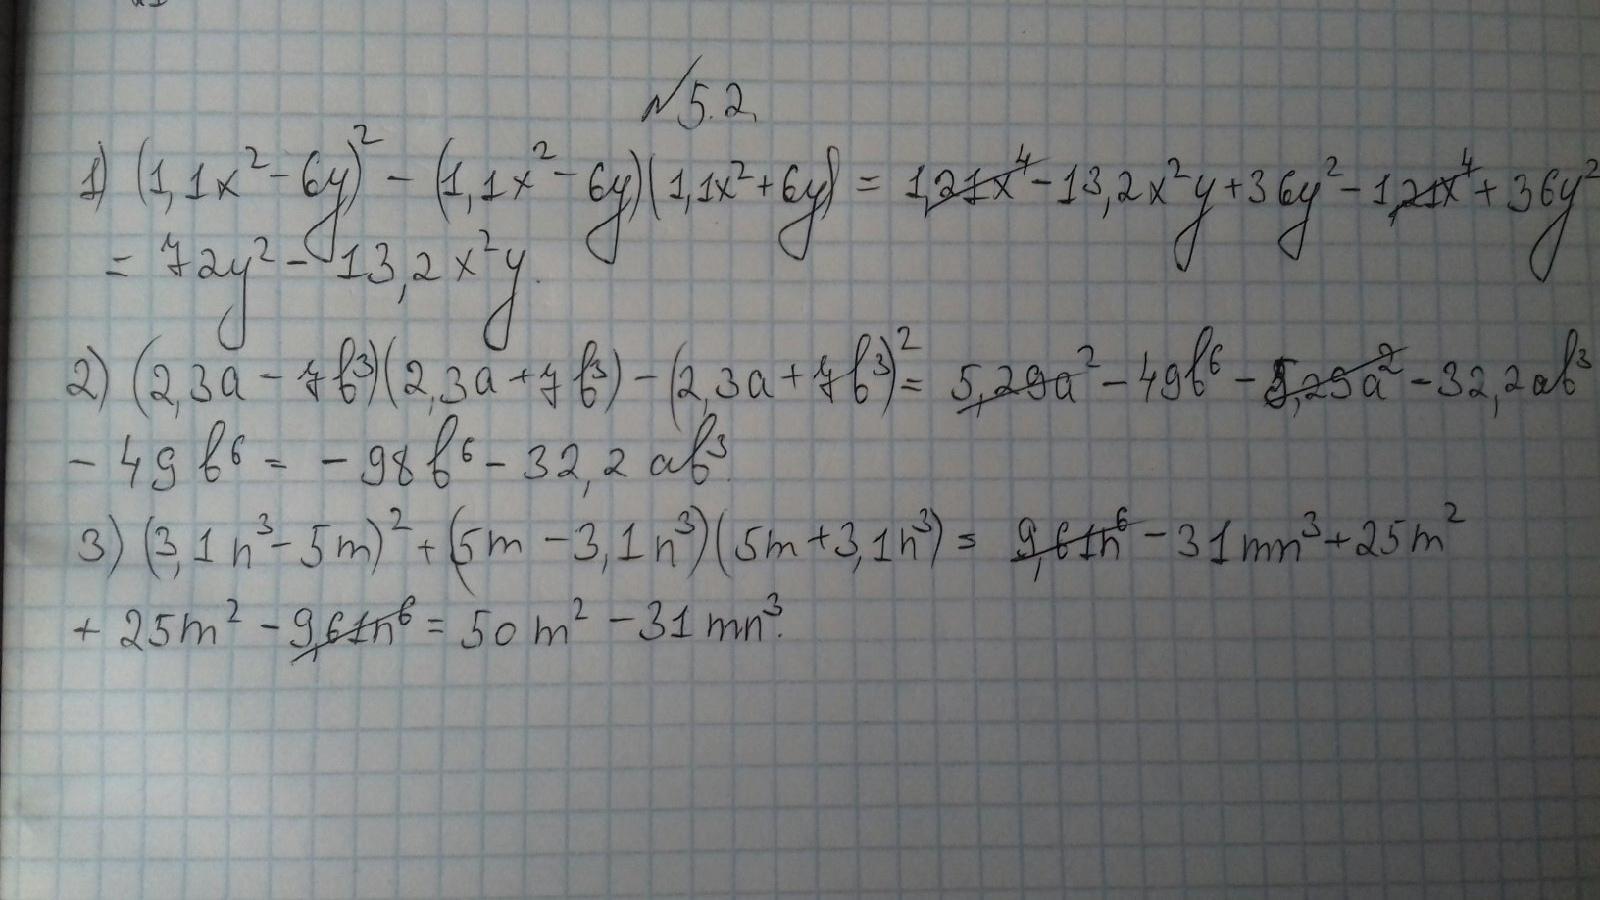 №5.2.
1) (1,1x² - 6y)² - (1,1x² - 6y)(1,1x² + 6y) = 1,21x⁴ - 13,2x²y + 36y² - 1,21x⁴ + 36y²
= 72y² - 13,2x²y.
2) (2,3a - 7b³)(2,3a + 7b³) - (2,3a + 7b³)² = 5,29a² - 49b⁶ - 5,29a² - 32,2ab³
- 49b⁶ = - 98b⁶ - 32,2ab³.
3) (3,1n³ - 5m)² + (5m - 3,1n³)(5m + 3,1n³) = 9,61n⁶ - 31mn³ + 25m²
+ 25m² - 9,61n⁶ = 50m² - 31mn³.